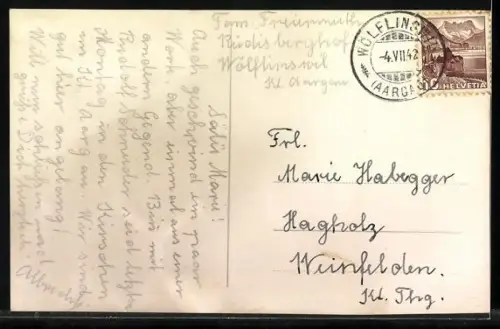 Fam.
Rüdisberghof
Wölflinswil
Kt. Aargau
WÖLFLINSWIL
-4.VII.42
(AARGAU)
HELVETIA
Salü Marie!
Auch geschwind ein paar
Worte aber einmal aus einer
andern Gegend. Bin mit
Rudolf Schneider seit letzten
Montag in den Kirschen
im Aargau. Wir sind
gut hier angelangt
Will nun schliessen und
grüsse Dich herzlich.
Frl.
Marie Habegger
Hagholz
Weinfelden.
Kt. Thg.